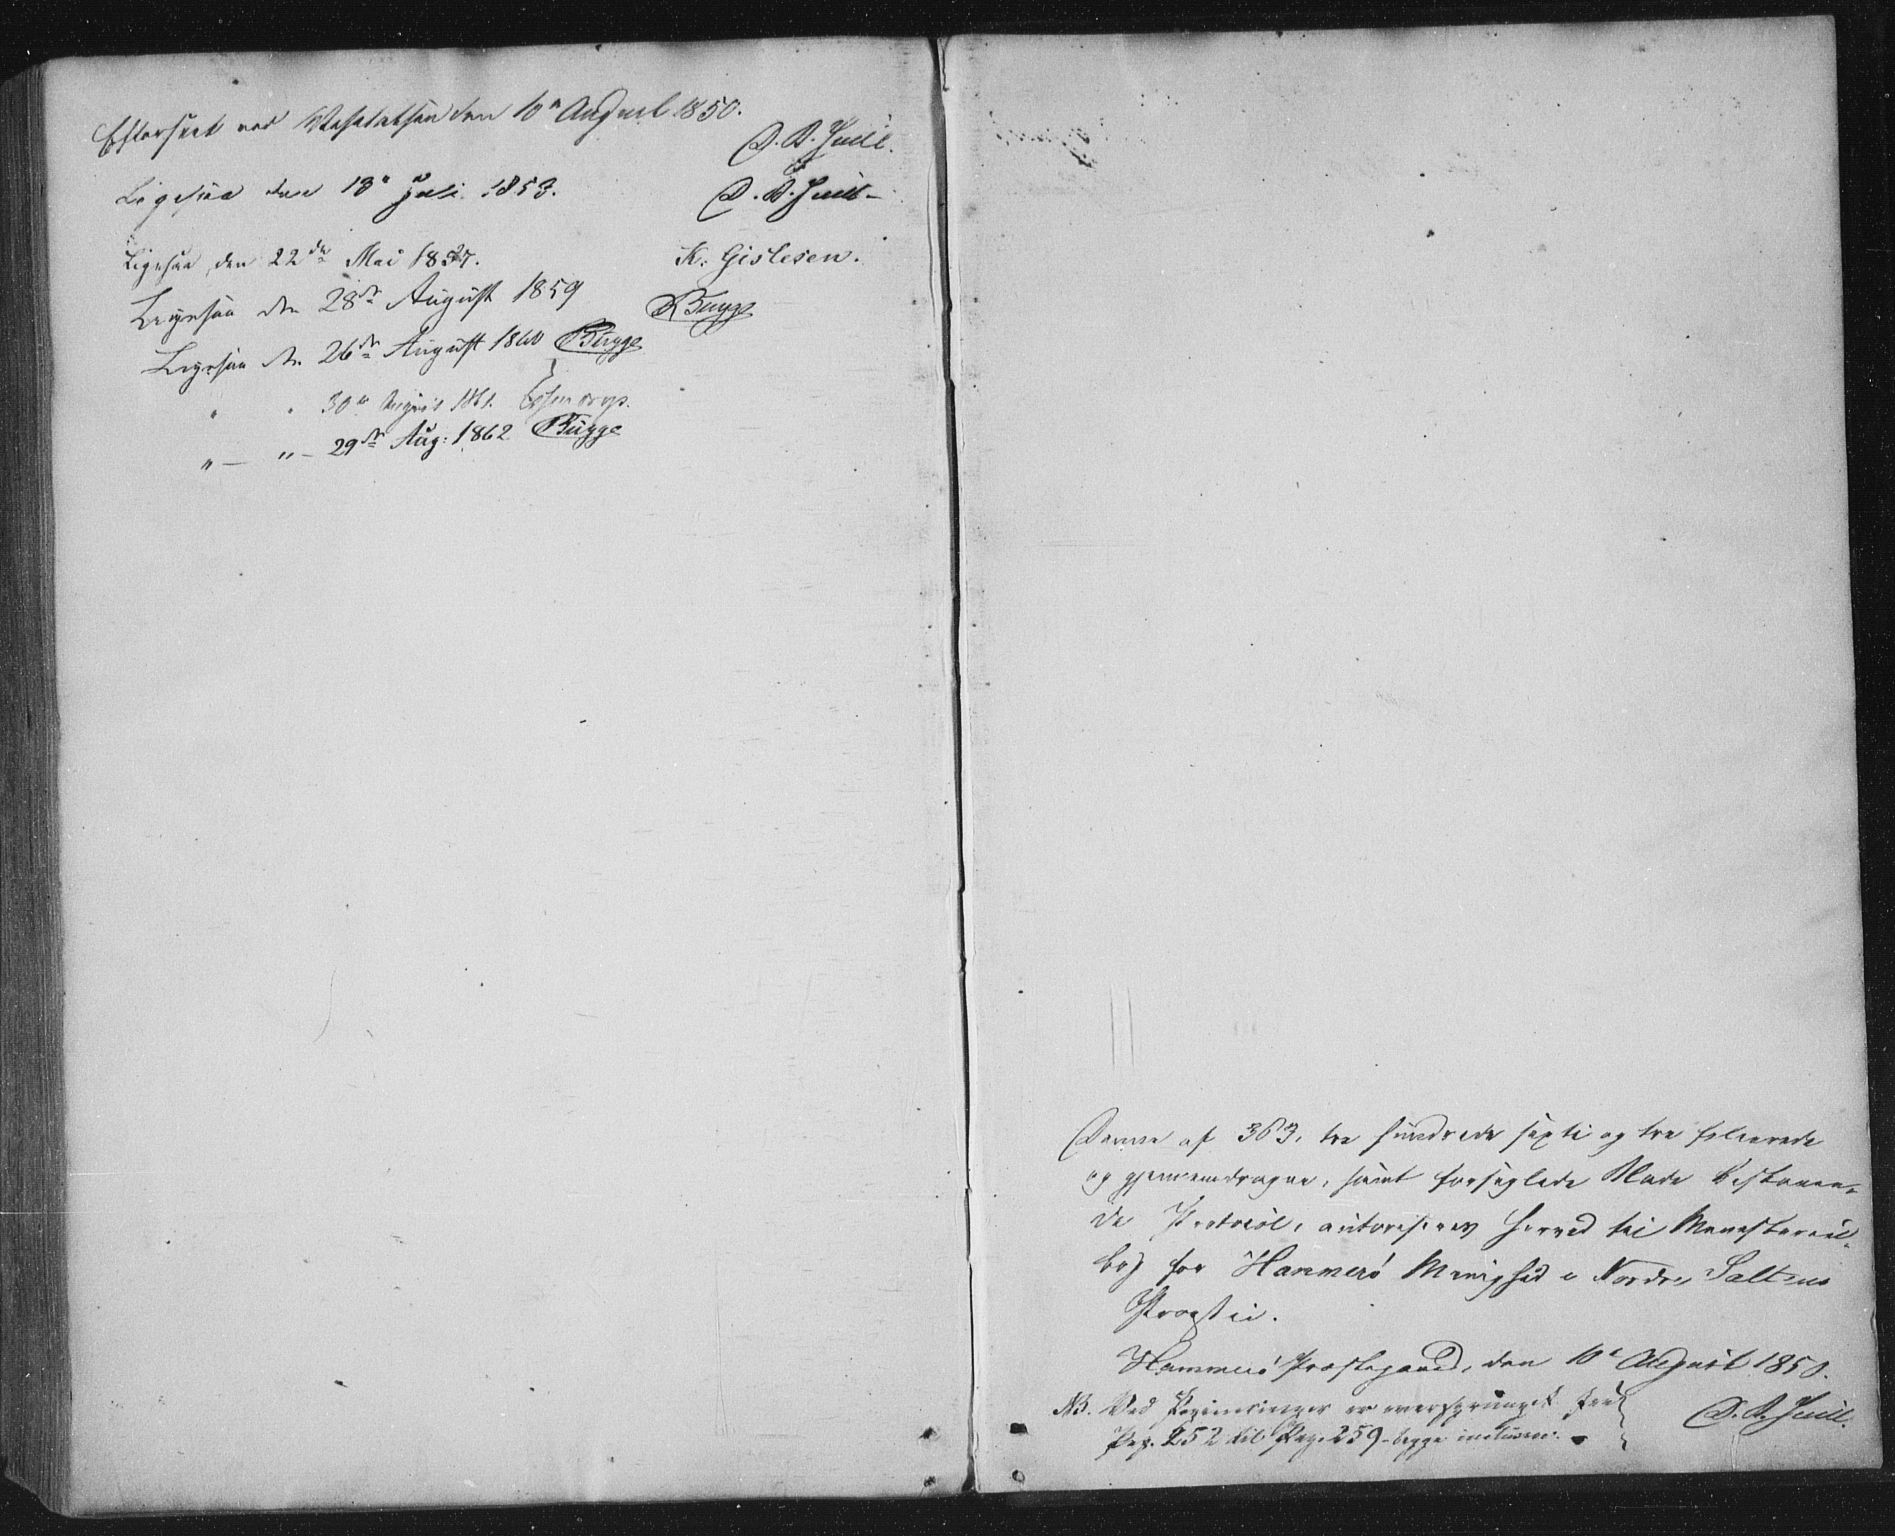 Efterseet ved Visitatsen den 10de August 1850.
D. B. Juell.
Ligesaa den 13de Juli 1853.
D. B. Juell
Ligesaa, den 22de Mai 1857. K. Gislesen.
Ligesaa den 28de August 1859 Bugge
Ligesaa den 26de August 1860 Bugge
" " 30te August 1861. Essendrop.
" — " — 29de Aug: 1862 Bugge
Denne af 363, tre hundrede sexti og tre folierede
og gjennemdragne, samt forseglede Blade bestaaen-
de Protocol, autoriseres herved til Ministerial-
bog for Hammerö Menighed i Nordre Saltens
Provsti.
Hammerö Præstegaard, den 10de August 1850.
D. B. Juell.
NB. Ved Pagineringen er oversprunget fra
Pag. 252 til Pag. 259 begge inclusive.